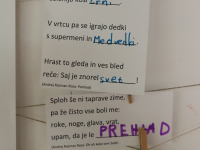 V vrtcu pa se igrajo dedki
s supermeni in Medvedki.
Hrast to gleda in ves bled
reče: Saj je znorel svet!
Sploh še ni taprave zime,
pa že čisto vse boli me:
roke, noge, glava, vrat,
upam, da je le PREHLAD